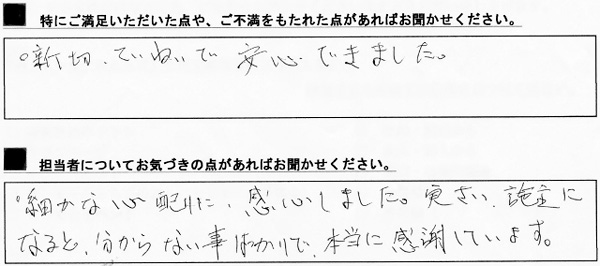 ■ 特にご満足いただいた点や、ご不満をもたれた点があればお聞かせください。
○新切、ていねいで 安心できました。
■ 担当者についてお気づきの点があればお聞かせください。
○細かな心配りに、感心しました。実さい、施主に
なると、分からない事ばかりで、本当に感謝しています。